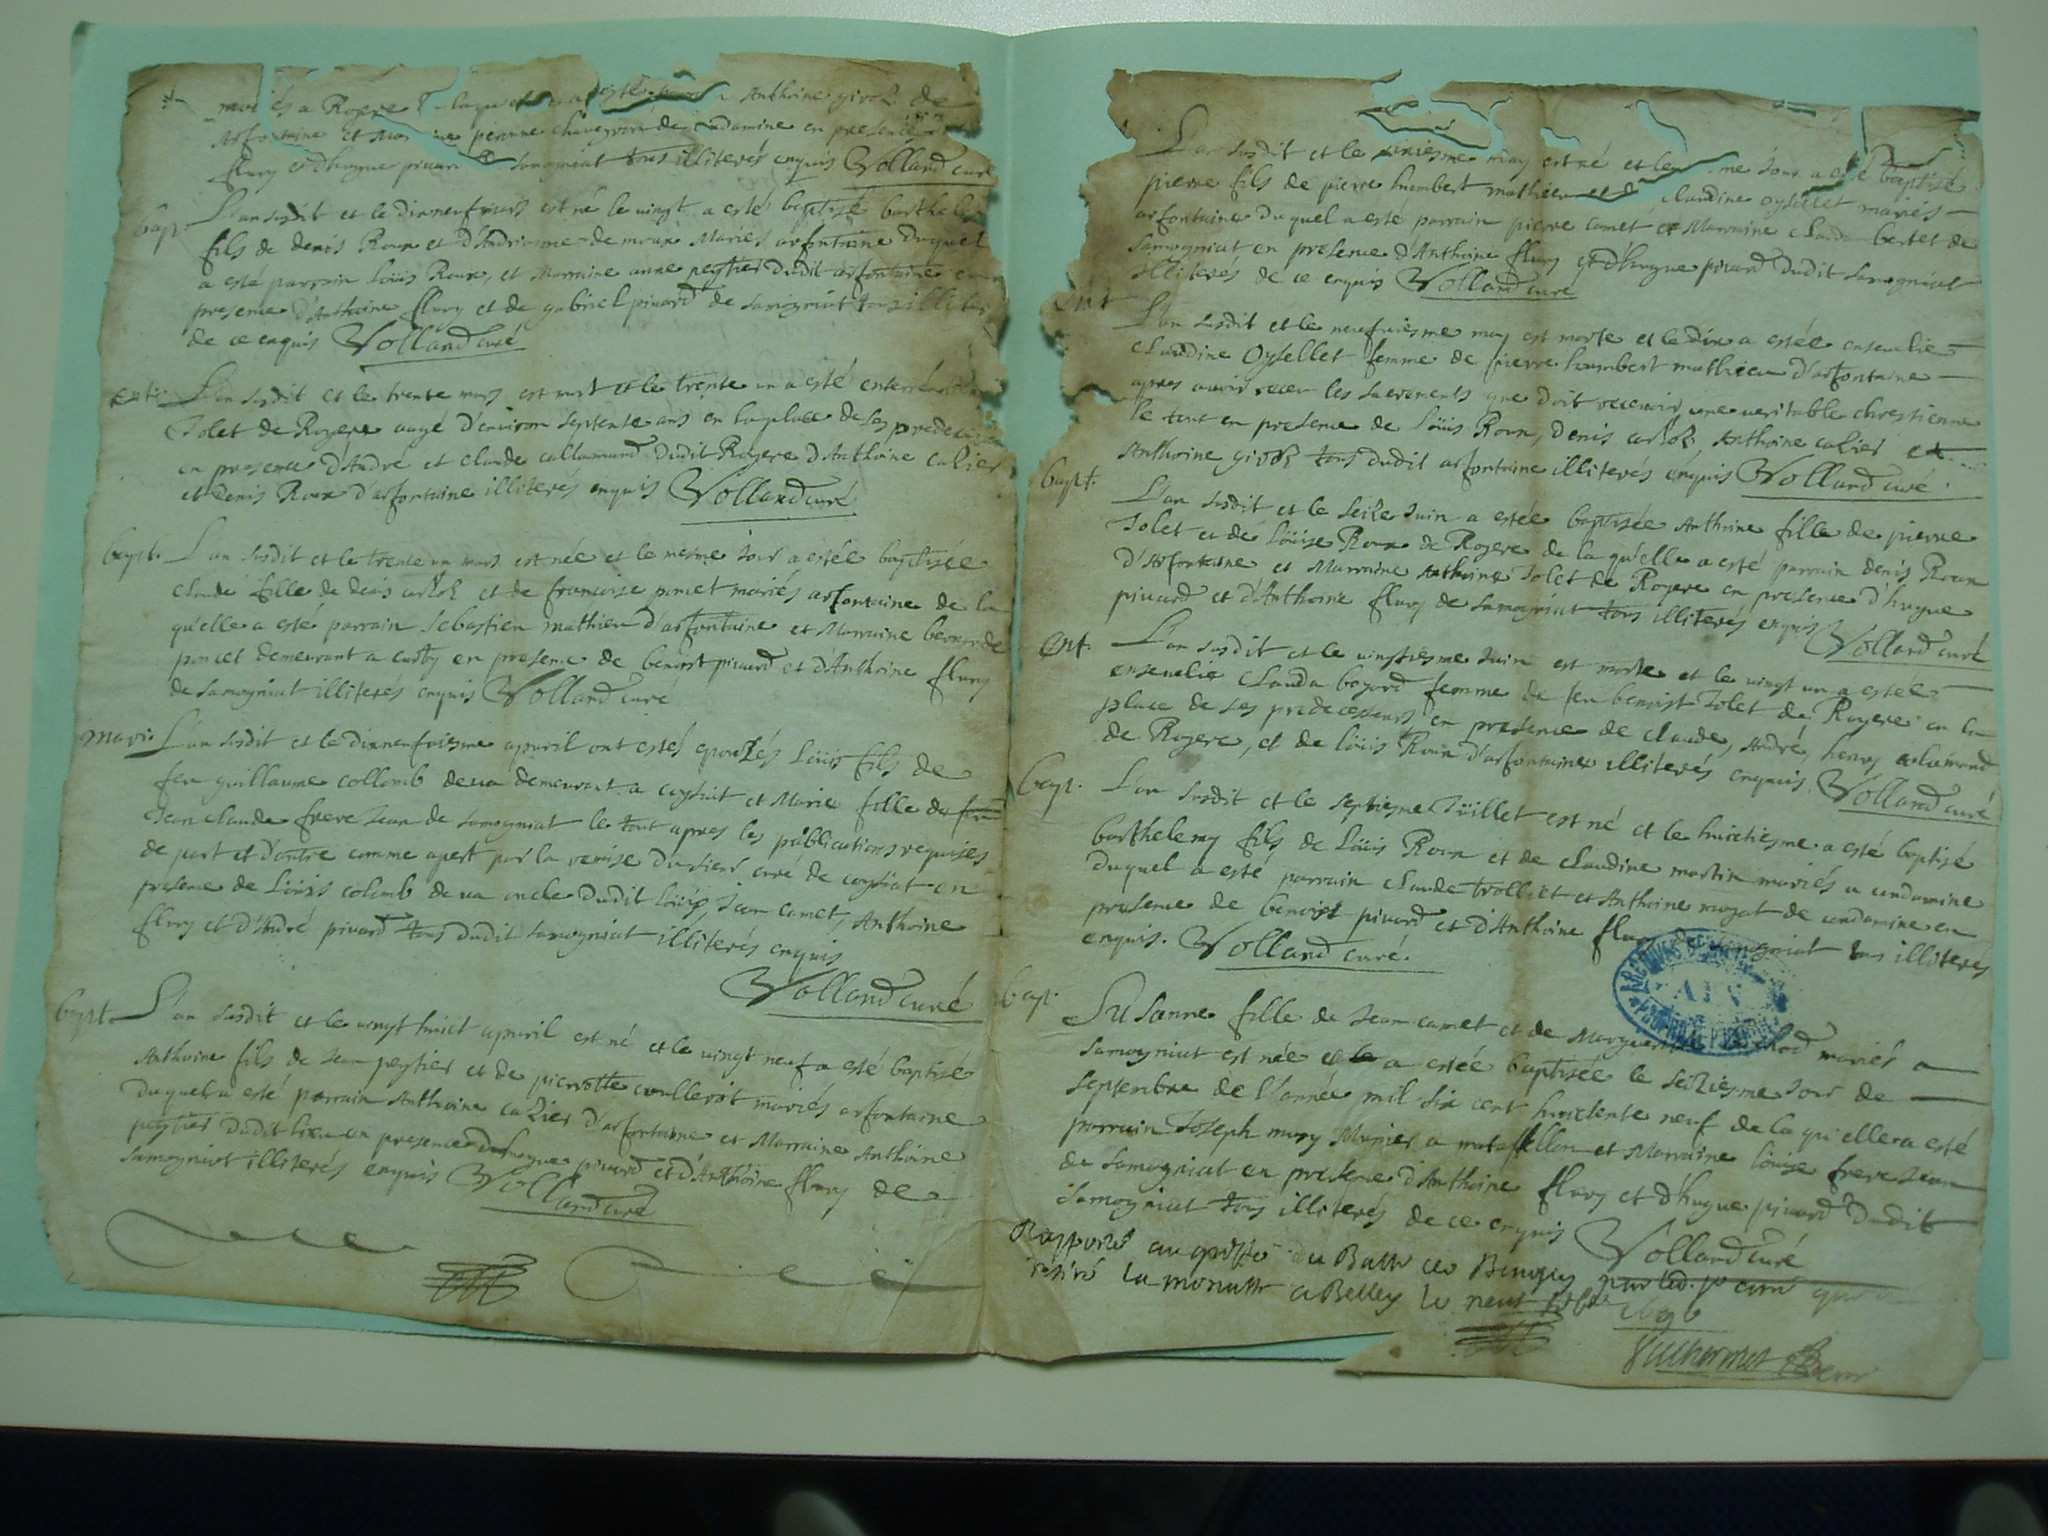 mariés a Rogere Anthoine giroz de
Arfontaine et Marraine pierne de Condamine en presence
flury et d'hugue pivard Samogniat tous illiterés enquis Volland curé
Bapt. L'an susdit et le dixneuf mars est né le vingt a esté baptisé barthele
fils de denis Roux et d'Andrienne de moux Mariés arfontaine duquel
a esté parrain Loüis Roux, et Marraine anne peytier dudit arfontaine en
presence d'Anthoine flury et de gabriel pivard de Samogniat tous illiter
de ce enquis Volland curé
L'an susdit et le trente mars est mort et le trente un a esté enterré
Jolet de Rogere aagé d'environ septente ans en la place de ses predecess
en presence d'André et Claude callamand dudit Rogere d'Anthoine cazier
et denis Roux d'arfontaine illiterés enquis Volland curé
bapt. L'an susdit et le trente un mars est née et le mesme jour a estée baptisée
Claude fille de denis et de francoise poncet mariés arfontaine de la
qu'elle a esté parrain Sebastien mathieu d'arfontaine et Marraine bernarde
poncet demeurant a en presence de benoist pivard et d'Anthoine flury
de Samogniat illiterés enquis Volland curé
mari. L'an susdit et le dixneufviesme apvril ont estés epouzés Loüis fils de
feu guillaume collomb de demeurant a coysiat et Marie fille de feu
Jean Claude frere Jean de Samogniat le tout apres les publications requises
de part et d'autre comme apert par la remise du sieur curé de coysiat en
presence de Loüis colomb de oncle dudit Loüis, Jean camet, Anthoine
flury et d'André pivard tous dudit Samogniat illiterés enquis
Volland curé
bapt. L'an susdit et le vingt huict apvril est né et le vingt neuf a esté baptisé
Anthoine fils de Jean peytier et de pierrotte mariés arfontaine
duquel a esté parrain Anthoine cazier d'arfontaine et Marraine Anthoine
peytier dudit lieu en presence d'hugue pivard et d'Anthoine flury de
Samogniat illiterés enquis Volland curé
L'an susdit et le may est né et le me jour a esté baptisé
pierre fils de pierre humbert mathieu et de claudine oysellet mariés
arfontaine duquel a esté parrain pierre camet et Marraine Clauda bertet de
Samogniat en presence d'Anthoine flury et d'hugue pivard dudit Samogniat
illiterés de ce enquis Volland curé
Ent L'an susdit et le neufviesme may est morte et le dix a estée ensevelie
claudine Oysellet femme de pierre humbert mathieu d'arfontaine
apres avoir receu les sacrements que doit recevoir une veritable chrestienne
le tout en presence de Loüis Roux, denis Anthoine cazier et
Anthoine giroz tous dudit arfontaine illiterés enquis Volland curé
bapt. L'an susdit et le seize Juin a estée baptisée Anthoine fille de pierre
Jolet et de Loüise Roux de Rogere de la qu'elle a esté parrain denis Roux
d'Arfontaine et Marraine Anthoine Jolet de Rogere en presence d'hugue
pivard et d'Anthoine flury de Samogniat tous illiterés enquis Volland curé
Ent. L'an susdit et le vingtiesme Juin est morte et le vingt un a estée
ensevelie Clauda boyard femme de feu benoist Jolet de Rogere en la
place de ses predecesseurs en presence de claude, André, henry
de Rogere, et de Loüis Roux d'arfontaine illiterés enquis Volland curé
bapt. L'an susdit et le septiesme Jüillet est né et le huictiesme a esté baptisé
barthelemy fils de Loüis Roux et de claudine martin mariés a condamine
duquel a esté parrain claude trolliet et Anthoine mozat de condamine en
presence de benoist pivard et d'Anthoine flury de Samogniat tous illiterés
enquis. Volland curé.
bapt. Susanne fille de Jean camet et de mariés a
Samogniat est née et le a estée baptisée le seiziesme jour de
septembre de l'année mil six cent huictente neuf de la qu'elle a esté
parrain Joseph mury Munier a matafellon et Marraine loüise frere Jean
de Samogniat en presence d'Anthoine flury et d'hugue pivard dudit
Samogniat tous illiterés de ce enquis Volland curé
Rapporté au greffe du Bugey par led. Sr curé qui a
retiré la minutte a Belley le neuf